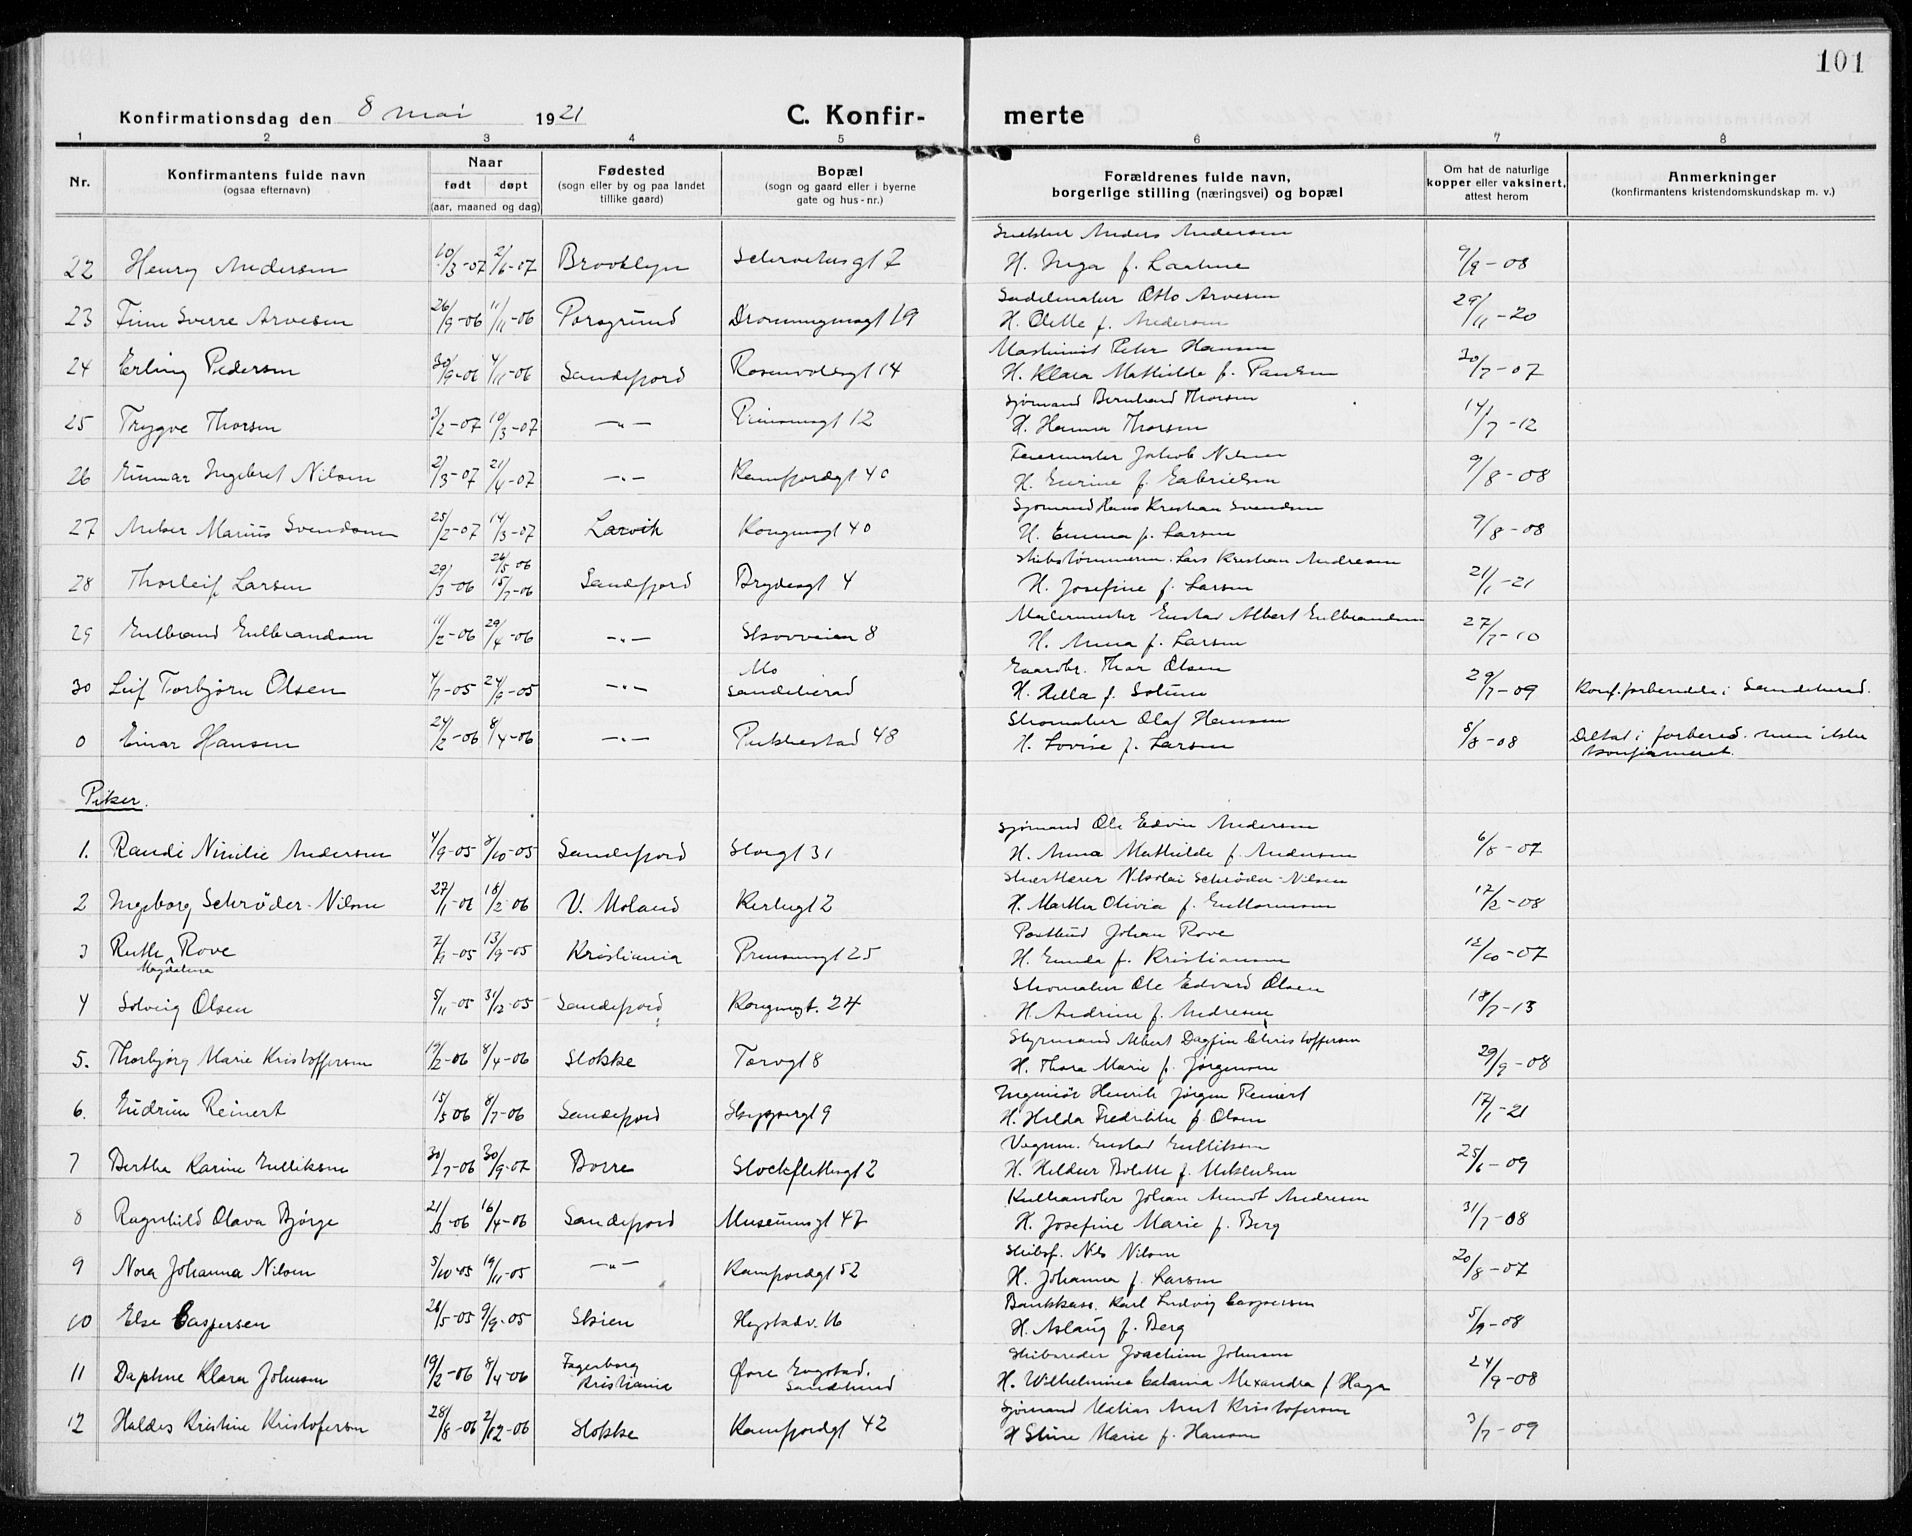 101
Konfirmationsdag den 8 mai 1921 C. Konfir- merte
1 2 3 4 5 6 7 8
Nr. Konfirmantens fulde navn (ogsaa efternavn) Naar født døpt (aar, maaned og dag) Fødested (sogn eller by og paa landet tillike gaard) Bopæl (sogn og gaard eller i byerne gate og hus-nr.) Forældrenes fulde navn, borgerlige stilling (næringsvei) og bopæl Om hat de naturlige kopper eller vaksinert, attest herom Anmerkninger (konfirmantens kristendomskundskap m. v.)
Anders Andersen
22 Henry Andersen 10/3-07 2/6-07 Brooklyn 7 H. Inga f. 9/9-08
Sadelmaker Otto Arvesen
23 Finn Sverre Arvesen 26/9-06 11/11-06 Porsgrund Dronningensgt 19 H. f. Andersen 29/11-20
Maskinist Peter Hansen
24 Erling Pedersen 30/9-06 4/11-06 Sandefjord Rosenvoldsgt 14 H. Klara Mathilde f. Paulsen 30/7-07
Sjømand Bernhard Thorsen
25 Trygve Thorsen 3/2-07 10/3-07 -"- Prinsensgt 12 H. Hanna Thorsen 14/7-12
Feiermester Jakob Nilsen
26 Gunnar Ingebret Nilsen 2/3-07 21/4-07 -"- Kamfjordgt 40 H. f. Gabrielsen 9/8-08
Sjømand Hans Kristian Svendsen
27 Marius Svendsen 25/2-07 14/3-07 Larvik Kongensgt 40 H. Emma f. Larsen 9/8-08
26/5 06 Skibstømmerm. Lars Kristian Andresen
28 Thorleif Larsen 29/3-06 15/7-06 Sandefjord Brydesgt 4 H. Josefine f. Larsen 21/1-21
Malermester Gustav Albert Gulbrandsen
29 Gulbrand Gulbrandsen 11/2-06 29/4-06 -"- Skovveien 8 H. Anna f. Larsen 27/7-10
Mo Gaardbr. Thor Olsen
30 Leif Torbjørn Olsen 4/7-05 24/9-05 -"- Sandeherad H. Hella f. Solum 29/7-09 Konf.forberedelse i Sandeherad.
Skomaker Olaf Hansen
0 Einar Hansen 24/2-06 8/4-06 -"- Pukkestad 48 H. Lovise f. Larsen 8/8-08 Deltat i forbered. men ikke
konfirmeret.
Piker.
Sjømand Ole Edvin Andersen
1. Randi Andersen 4/9-05 8/10-05 Sandefjord Storgt 31 H. Anna Mathilde f. Andersen 6/8-07
Nikolai Schrøder-Nilsen
2 Ingeborg Schrøder-Nilsen 27/1-06 18/2-06 V. Moland 2 H. Martha Olivia f. Guttormsen 12/2-08
Postbud Johan Rove
3 Ruth Rove 13/9-05 Kristiania Prinsensgt 25 H. Gunda f. Kristiansen 12/10-07
Magdalena
Skomaker Ole Edvard Olsen
4 Solveig Olsen 5/11-05 31/12-05 Sandefjord Kongensgt. 24 H. Andrine f. Andresen 18/7-13
Styrmand Albert Dagfin Christoffersen
5. Thorbjørg Marie Kristoffersen 8/4-06 Stokke Torvgt 8 H. Thora Marie f. Jørgensen 29/9-08
Ingeniør Henrik Jørgen Reinert
6. Gudrun Reinert 15/5 06 8/7-06 Sandefjord Skippergt 9 H. Hilda Fredrikke f. Olsen 17/1-21
Vognm. Gustav Gulliksen
7 Bertha Karine Gulliksen 30/7-06 30/9-07 Borre Stockflethsgt 2 H. Hildur Bolette f. Mikkelsen 25/6-09
Kulhandler Johan Arndt Andresen
8 Ragnhild Olava Bjørge 16/4-06 Sandefjord Museumsgt 47 H. Josefine Marie f. Berg 31/7-08
Nils Nilsen
9 Nora Johanna Nilsen 5/10-05 19/11-05 -"- Kamfjordgt 52 H. Johanna f. Larsen 20/8-07
Bankkass. Karl Ludvig Caspersen
10 Else Caspersen 26/5-05 9/9-05 Skien Hystadv. 16 H. Aslaug f. Berg 5/9-08
Fagerborg Skibsreder Joachim Johnsen
11 Daphne Klara Johnsen 19/2-06 8/4-06 Kristiania Øvre H. Wilhelmina Catarina Alexandra f Haga 24/9-08
Sjømand Matias Kristofersen
12 Haldis Kristine Kristofersen 28/8-06 2/12-06 Stokke Kamfjordgt 42 H Stine Marie f. Hansen 3/7-09